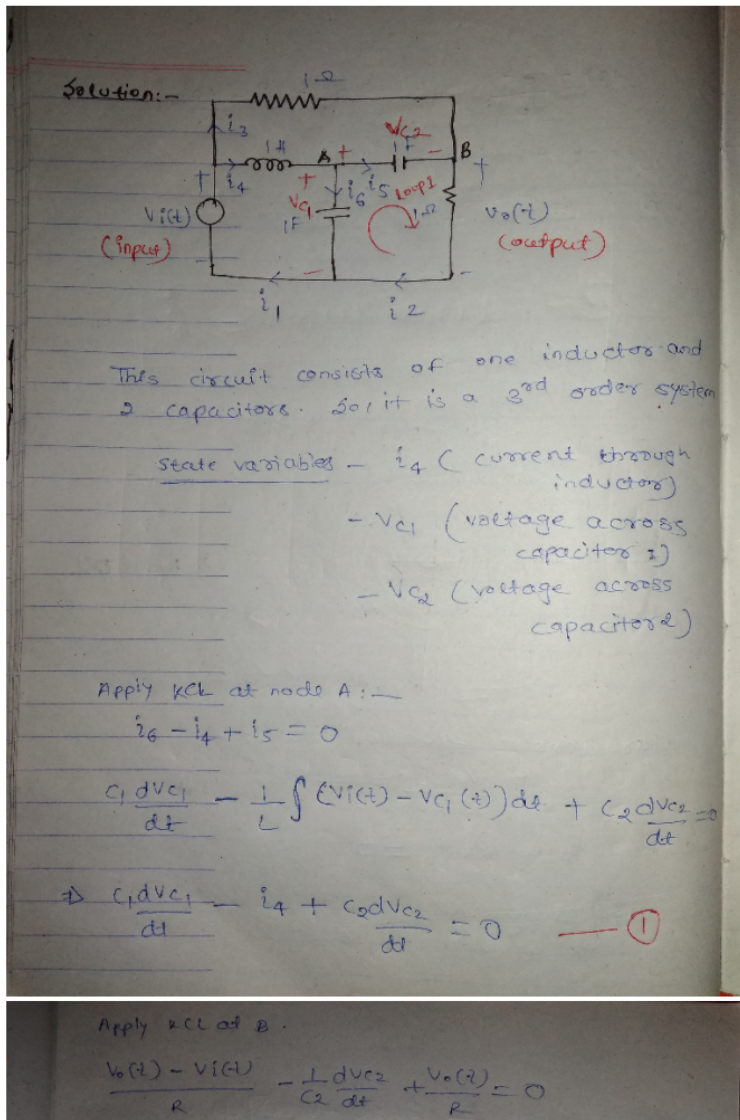 Solution:-
1Ω
i3
1H
A
+
Vc2
1F
-
B
+
+
i4
+
i6
i5
Loop1
Vi(t)
Vc1
1F
1Ω
Vo(t)
(input)
(output)
-
-
-
i1
i2
This circuit consists of one inductor and
2 capacitors. So, it is a 3rd order system
State variables - i4 ( current through
inductor)
- Vc1 (voltage across
capacitor 1)
- Vc2 (voltage across
capacitor 2)
Apply KCL at node A:-
i6 - i4 + i5 = 0
C1 dVc1/dt - 1/L ∫ (Vi(t) - Vc1(t)) dt + C2 dVc2/dt = 0
⇒ C1 dVc1/dt - i4 + C2 dVc2/dt = 0 — ①
Apply KCL at B.
Vo(t) - Vi(t)/R - 1/C2 dVc2/dt + Vo(t)/R = 0